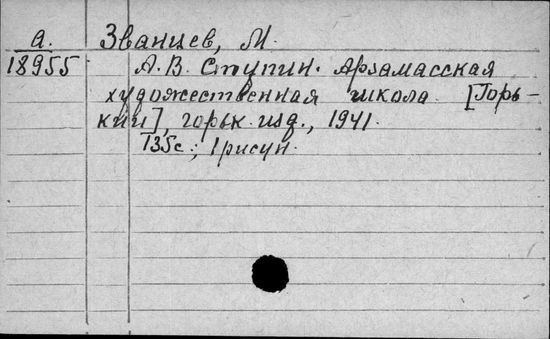 а. Званцев, М.
18955 А.В. Ступин. Арзамасская
художественная школа. [Горь-
кий], Горьк. изд., 1941.
135с.; 1 рисун.